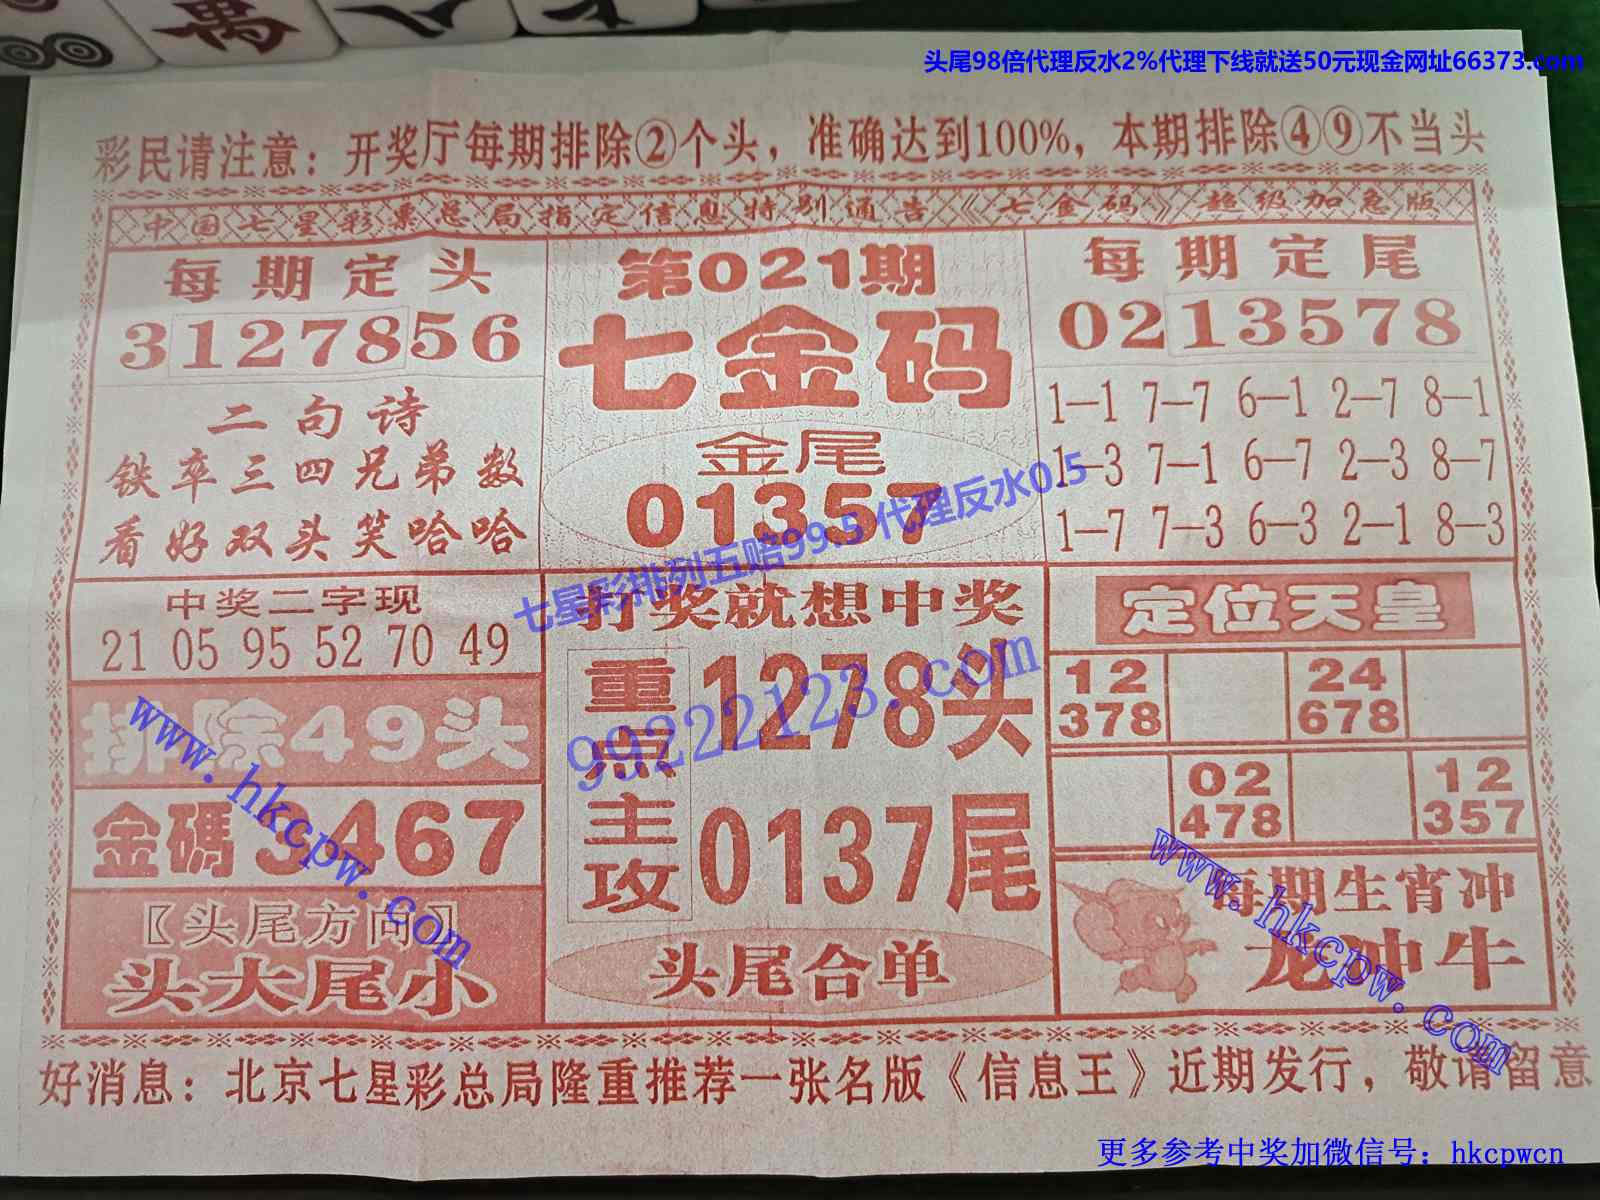 头尾98倍代理反水2%代理下线就送50元现金网址66373.com
彩民请注意：开奖厅每期排除②个头，准确达到100%，本期排除④⑨不当头
中国七星彩票总局指定信息特别通告《七金码》超级加急版
每期定头
3127856
二句诗
铁卒三四兄弟数
看好双头笑哈哈
第021期
七金码
金尾
01357
每期定尾
0213578
1—1 7—7 6—1 2—7 8—1
1—3 7—1 6—7 2—3 8—7
1—7 7—3 6—3 2—1 8—3
七星彩排列五赔99.5 代理反水0.5
中奖二字现
21 05 95 52 70 49
排除49头
金碼3467
〖头尾方向〗
头大尾小
打奖就想中奖
重点主攻
1278头
0137尾
头尾合单
99222123.com
定位天皇
12
378
24
678
02
478
12
357
每期生宵冲
龙冲牛
www.hkcpw.com
www.hkcpw.com
好消息：北京七星彩总局隆重推荐一张名版《信息王》近期发行，敬请留意
更多参考中奖加微信号：hkcpwcn